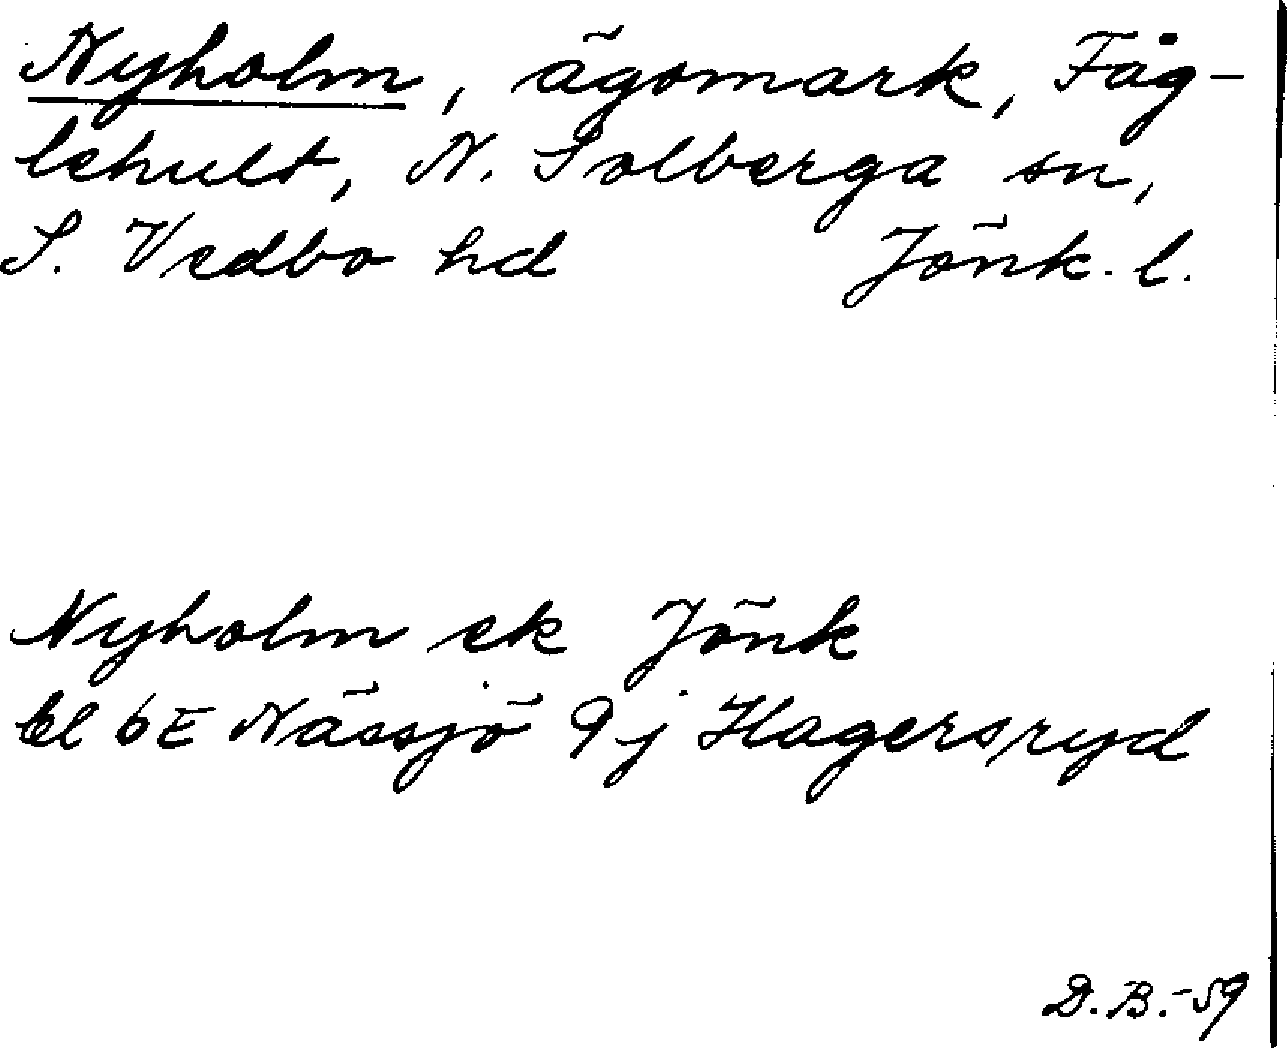 Nyholm, ägomark, Fåg-
lehult, N. Solberga sn,
S. Vedbo hd Jönk. l.
Nyholm ek Jönk
bl 6E Nässjö 9j Hagersryd
D.B.-59